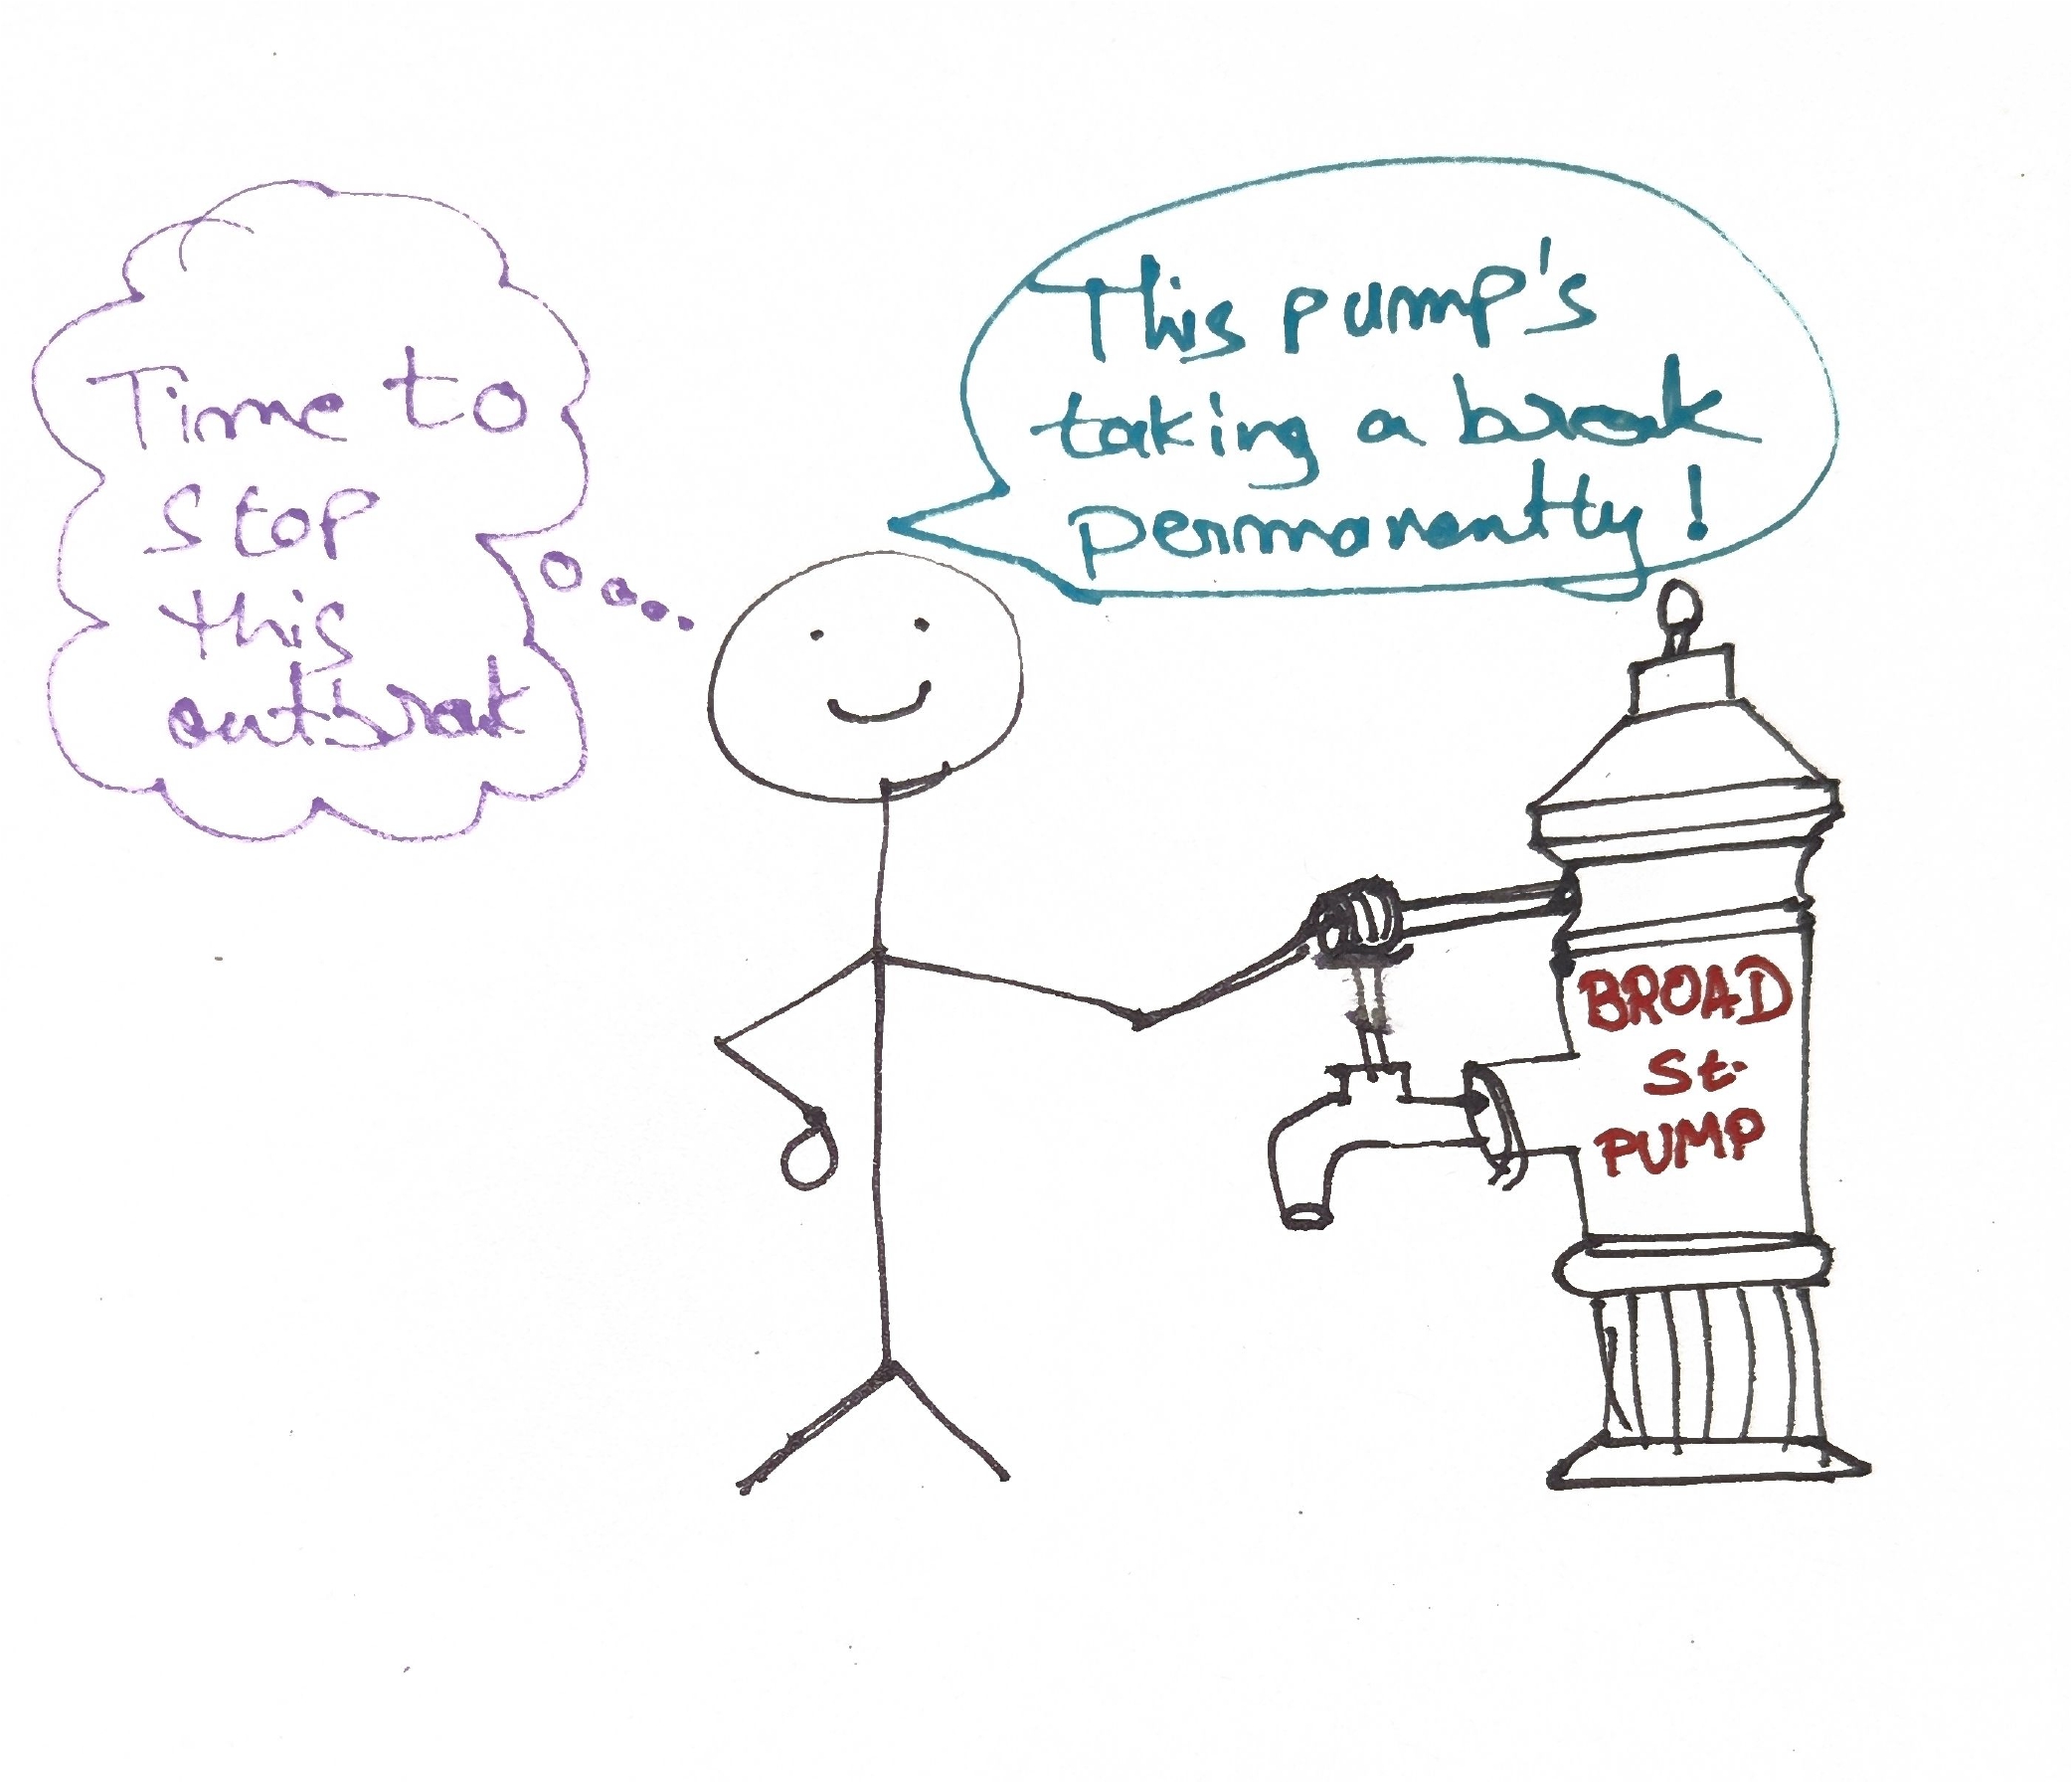 Time to
stop
this
outbreak
This pump's
taking a break
permanently!
BROAD
St.
PUMP